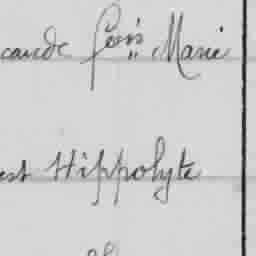 caude fçois Marie
est Hippolyte